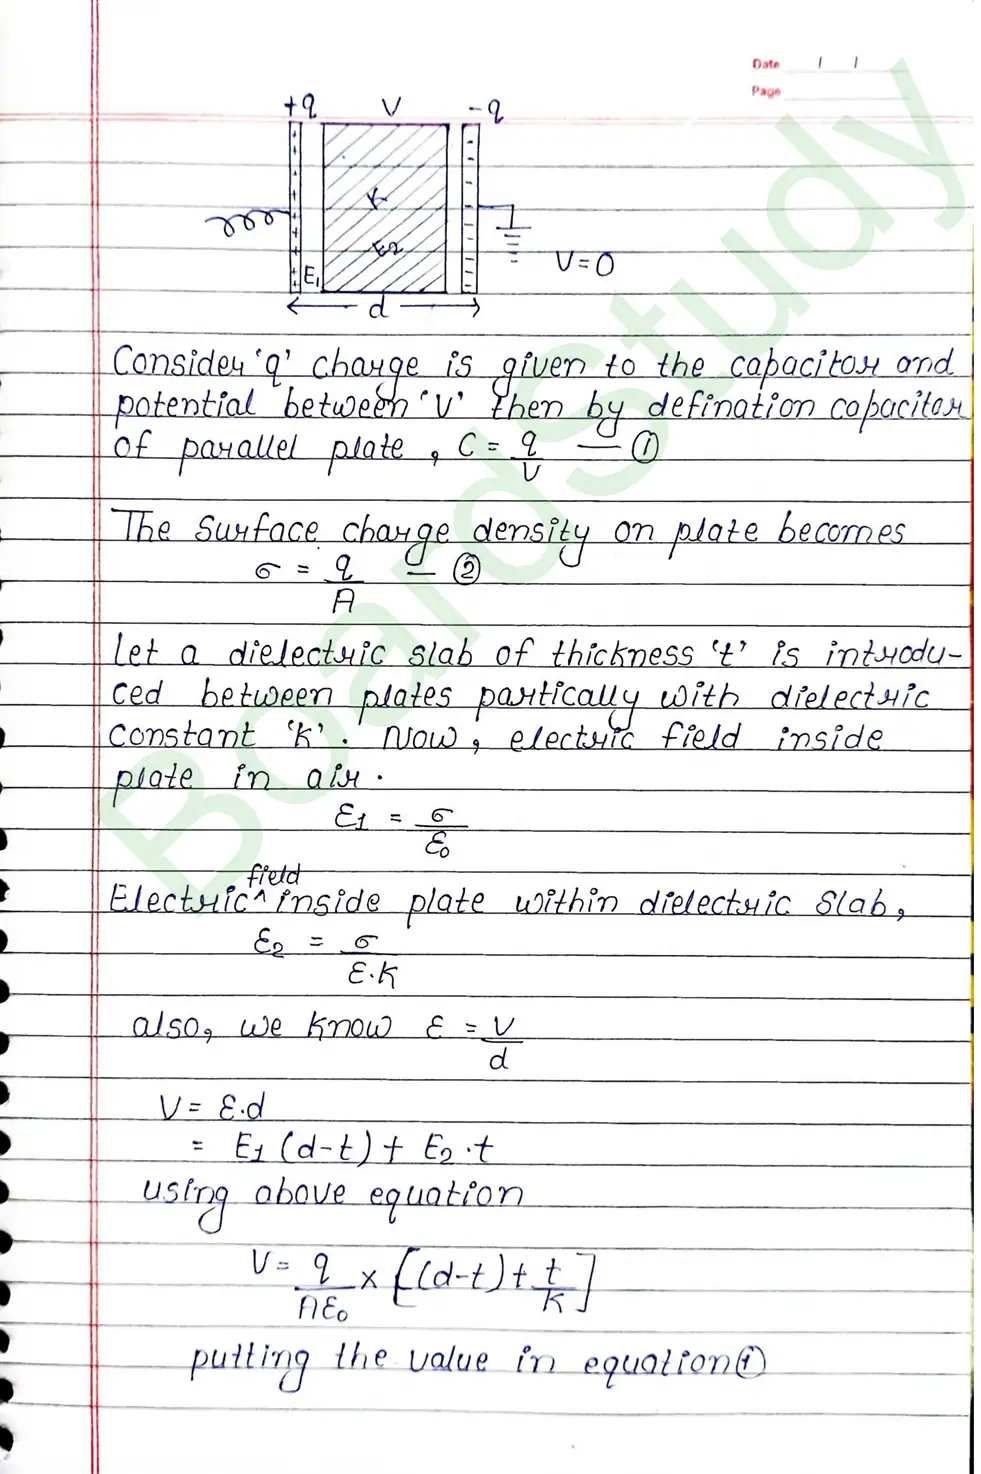 Date / /
Page
+q V -q
K
E2
E1
V=0
d
Consider 'q' charge is given to the capacitor and
potential between 'V' then by defination capacitor
of parallel plate, C = q/V — ①
The Surface charge density on plate becomes
σ = q/A — ②
Let a dielectric slab of thickness 't' is introdu-
ced between plates partically with dielectric
constant 'K'. Now, electric field inside
plate in air.
ε1 = σ/ε0
Electric ^field inside plate within dielectric slab,
ε2 = σ/ε.K
also, we know ε = V/d
V = ε.d
= E1 (d-t) + E2.t
using above equation
V = q/Aε0 × [(d-t) + t/K]
putting the value in equation ①
BoardStudy